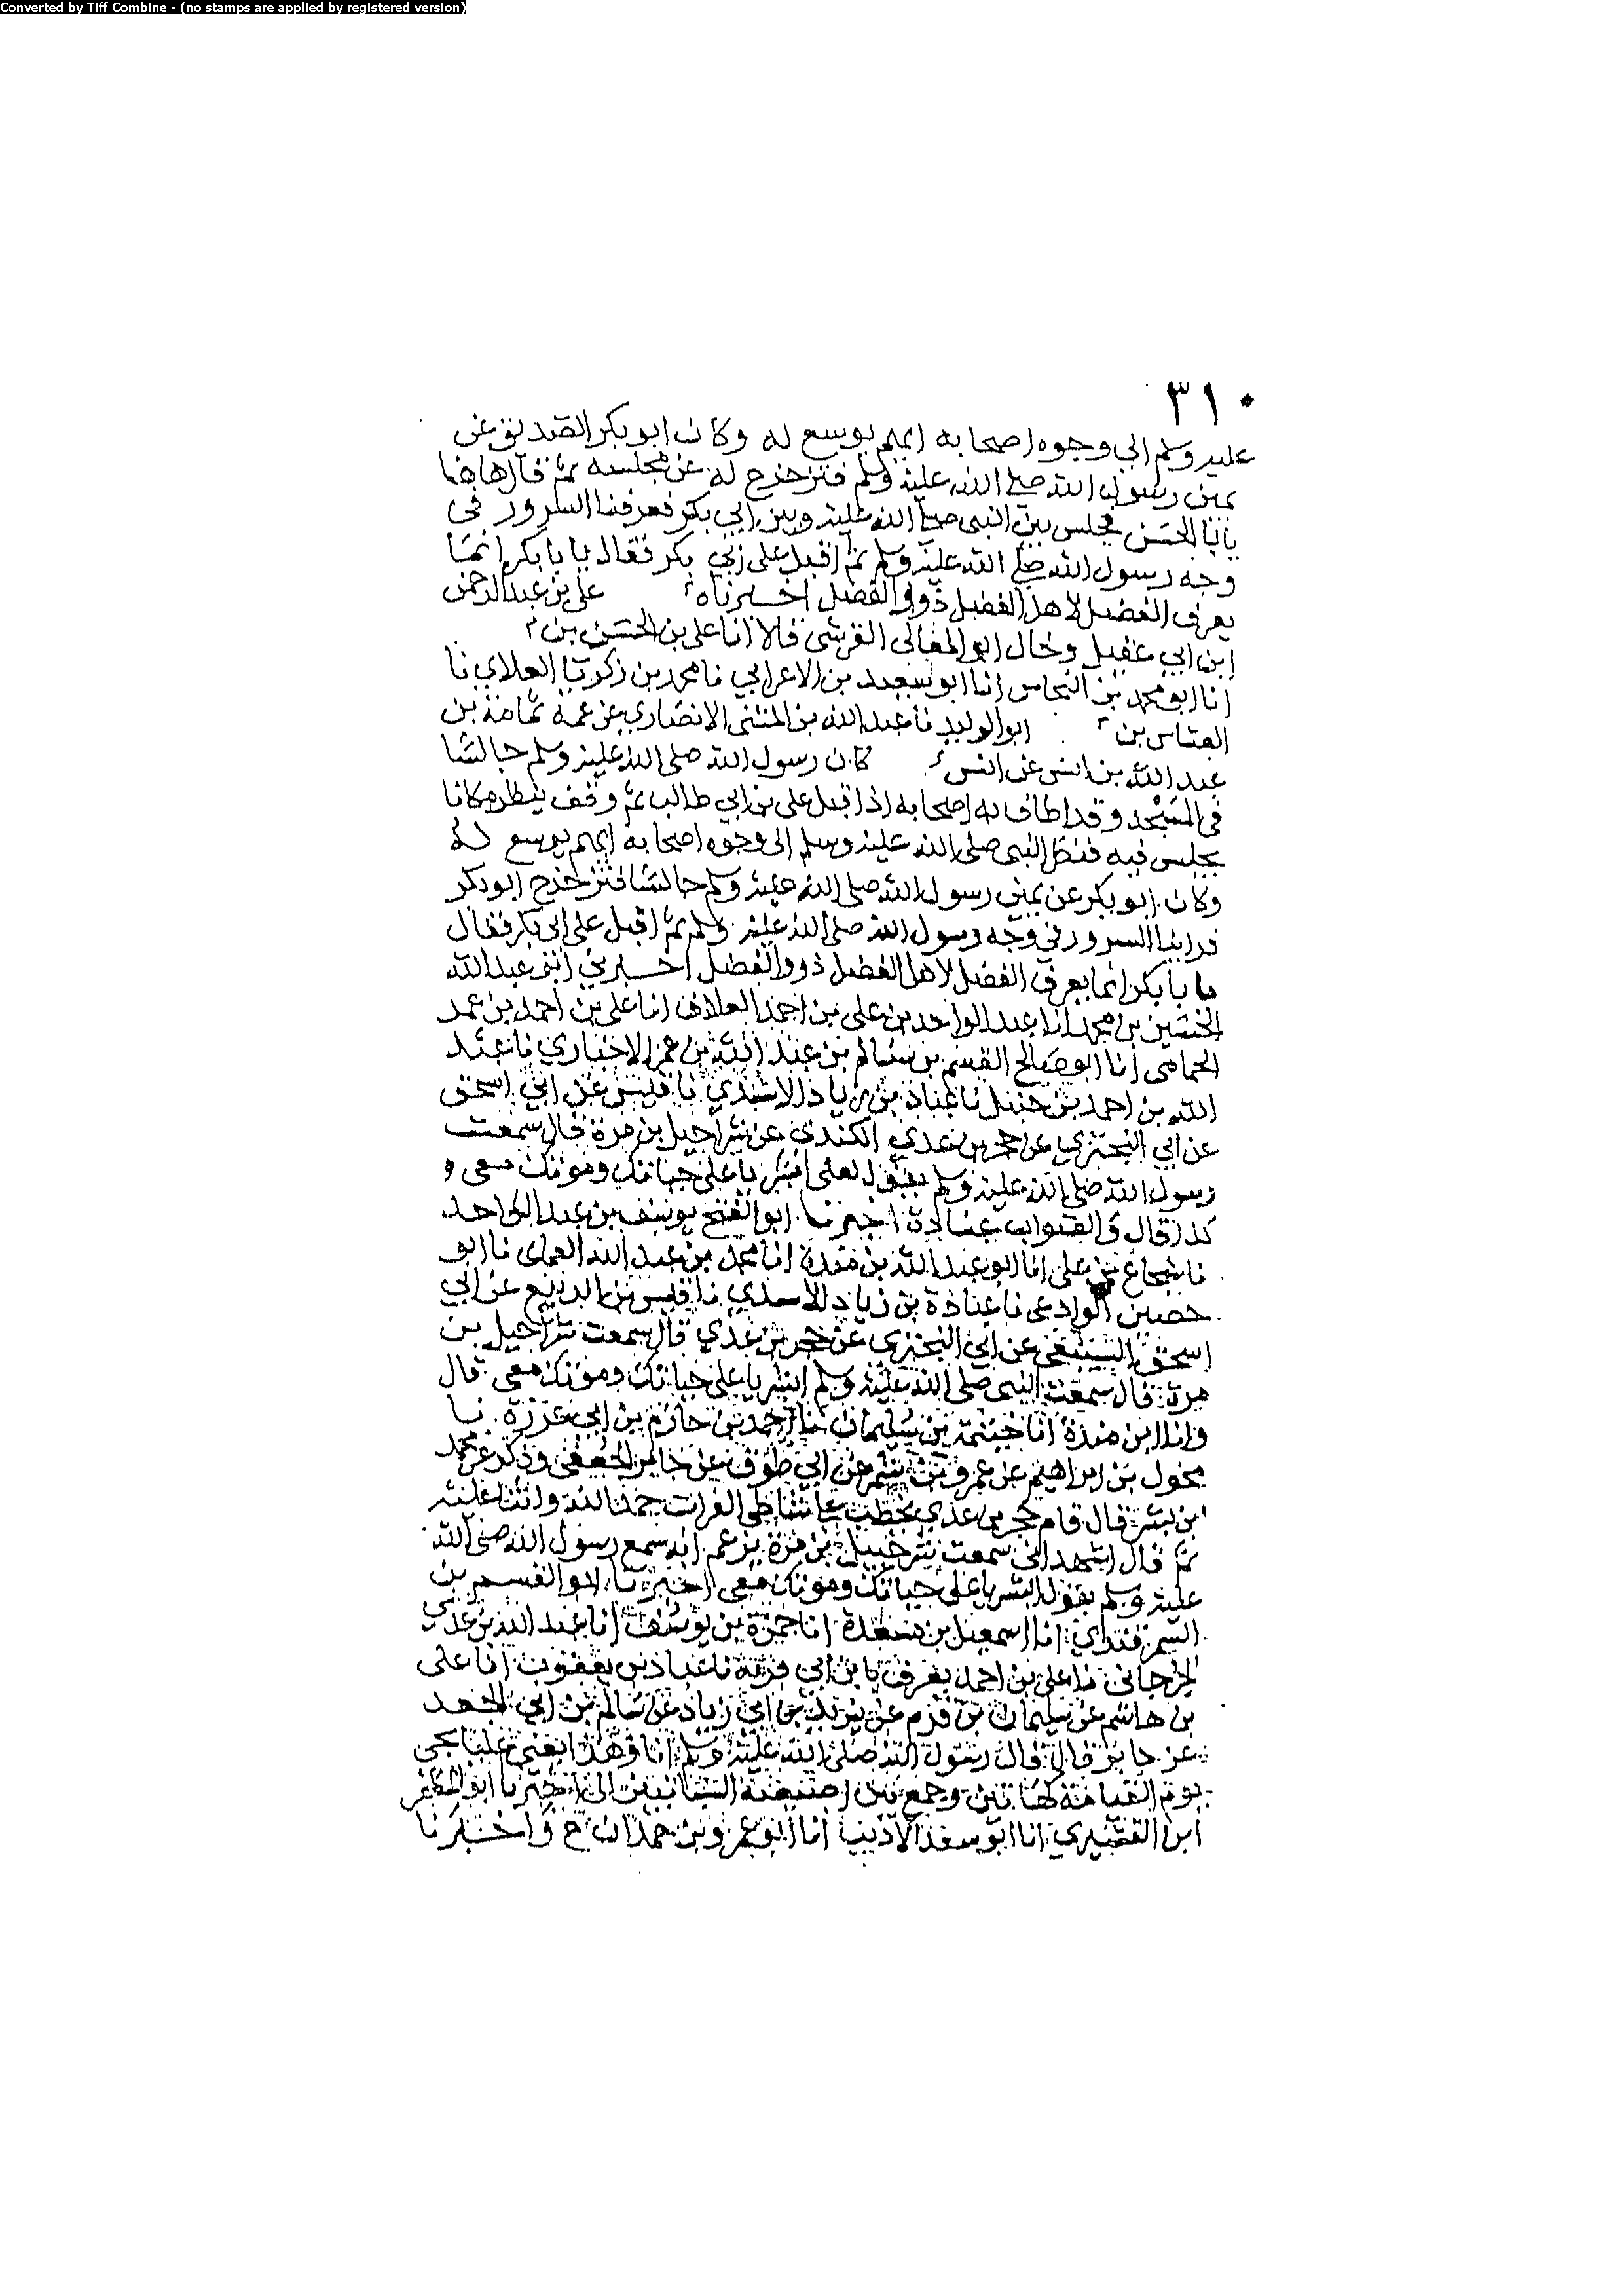 Converted by Tiff Combine - (no stamps are applied by registered version)
٣١٠
عليه وسلم الى وجوه اصحابه ايهم يوسع له وكان ابو بكر الصديق عن
يمين رسول الله صلى الله عليه وسلم فتزحزح له عن مجلسه ثم قال هاهنا
يابا الحسن فجلس بين النبي صلى الله عليه وبين ابي بكر فعرفنا السرور في
وجه رسول الله صلى الله عليه وسلم ثم اقبل على ابي بكر فقال يا با بكر انما
يعرف الفضل لاهل الفضل ذوو الفضل اخبرناه علي بن عبد الرحمن
ابن ابي عقيل وخال ابو المعالي القرشي قالا انا علي بن الحسن بن
انا ابو محمد بن النحاس انا ابو سعيد بن الاعرابي نا محمد بن زكريا الغلابي نا
العباس بن ابو الوليد نا عبد الله بن المثنى الانصاري عن عمه ثمامة بن
عبد الله بن انس عن انس كان رسول الله صلى الله عليه وسلم جالسا
في المسجد وقد اطاف به اصحابه اذ اقبل علي بن ابي طالب ثم وقف ينظر مكانا
يجلس فيه فنظر النبي صلى الله عليه وسلم الى وجوه اصحابه ايهم يوسع له
وكان ابو بكر عن يمين رسول الله صلى الله عليه وسلم جالسا فتزحزح ابو بكر
فراينا السرور في وجه رسول الله صلى الله عليه وسلم ثم اقبل على ابي بكر فقال
يا با بكر انما يعرف الفضل لاهل الفضل ذوو الفضل اخبرني ابو عبد الله
الحسين بن محمد انا عبد الواحد بن علي بن احمد العلاف انا علي بن احمد بن عمر
الحمامي انا ابو صالح القسم بن سالم بن عبد الله بن عمر الاخباري نا عبد
الله بن احمد بن حنبل نا عباد بن زياد الاسدي نا قيس عن ابي اسحق
عن ابي البختري عن حجر بن عدي الكندي عن شراحيل بن مرة قال سمعت
رسول الله صلى الله عليه وسلم يقول لعلي ابشر يا علي حياتك وموتك معي و
كذا قال والصواب عبادة اخبرنا ابو الفتح يوسف بن عبد الواحد
نا شجاع بن علي انا ابو عبد الله بن مندة انا محمد بن عبد الله العماني نا ابو
حصين الوادعي نا عبادة بن زياد الاسدي نا قيس بن الربيع عن ابي
اسحق السبيعي عن ابي البختري عن حجر بن عدي قال سمعت شراحيل بن
مرة قال سمعت النبي صلى الله عليه وسلم ابشر يا علي حياتك وموتك معي قال
وانا ابن مندة انا خيثمة بن سليمان نا احمد بن حازم بن ابي غرزة نا
مخول بن ابراهيم عن عمرو بن شمر عن ابي طوق عن جابر الجعفي وذكر عن محمد
ابن بشر قال قام حجر بن عدي يخطب على شاطى الفرات حمد الله واثنا عليه
ثم قال اشهد اني سمعت شرحبيل بن مرة يزعم انه سمع رسول الله صلى الله
عليه وسلم يقول ابشر يا علي حياتك وموتك معي اخبرنا ابو القسم بن
السمرقندي انا اسمعيل بن مسعدة انا حمزة بن يوسف انا عبد الله بن عدي
الجرجاني نا علي بن احمد يعرف بابن ابي قربة نا عباد بن يعقوب انا علي
بن هاشم عن سليمان بن قرم عن يزيد بن ابي زياد عن سالم بن ابي الجعد
عن جابر قال قال رسول الله صلى الله عليه وسلم انا وهذا يعني عليا يجي
يوم القيامة كهاتين وجمع بين اصبعيه السبابتين الى اخبرنا ابو المظفر
ابن القشيري انا ابو سعد الاديب انا ابو عمرو بن حمدان ح واخبرنا